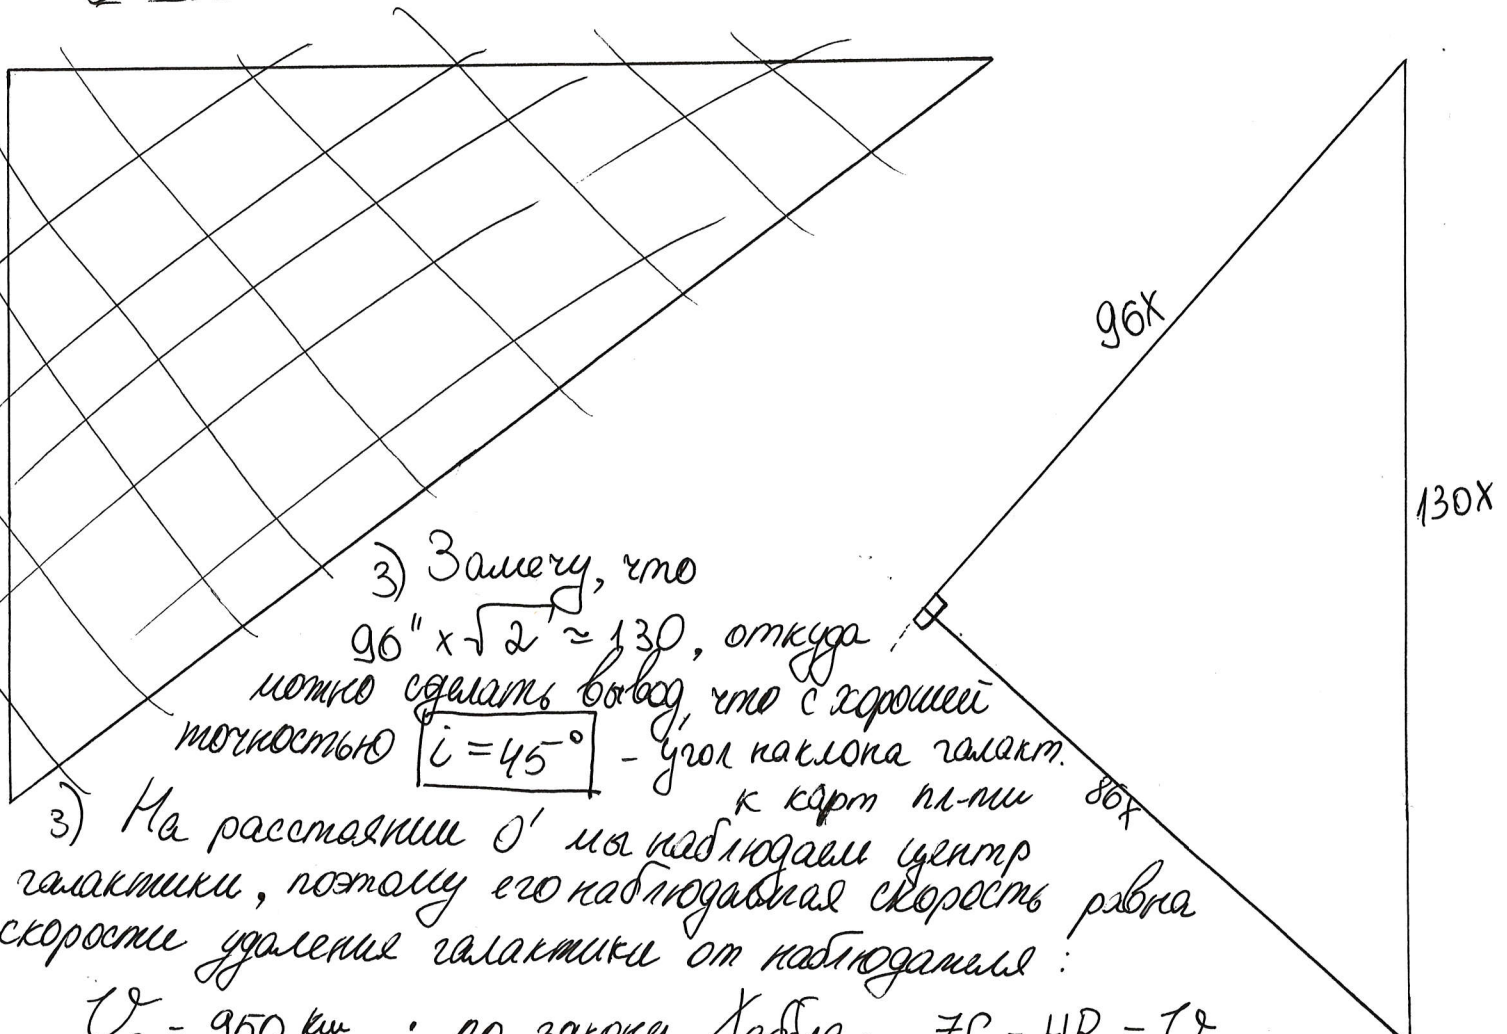 96x
130x
86x
3) Замечу, что
96" x √2 ≈ 130, откуда
можно сделать вывод, что с хорошей
точностью i = 45° - угол наклона галакт.
к карт пл-ти
3) На расстоянии 0' мы наблюдаем центр
галактики, поэтому его наблюдаемая скорость равна
скорости удаления галактики от наблюдателя:
= 950 км ; по закону Хаббла